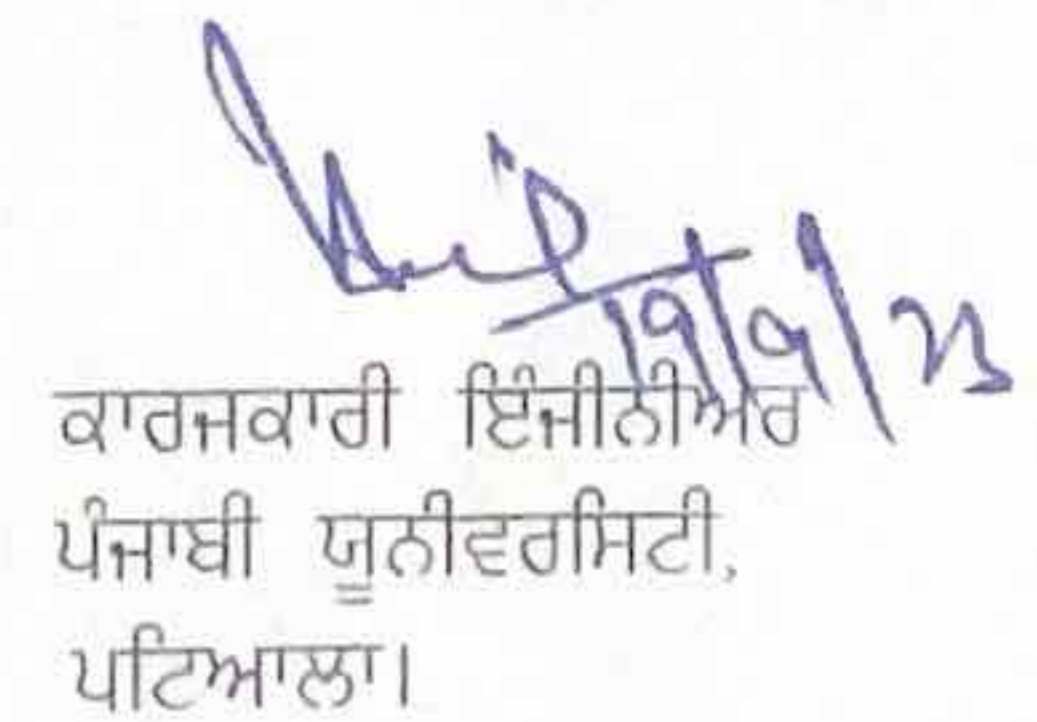 19/9/23
ਕਾਰਜਕਾਰੀ ਇੰਜੀਨੀਅਰ
ਪੰਜਾਬੀ ਯੂਨੀਵਰਸਿਟੀ,
ਪਟਿਆਲਾ।